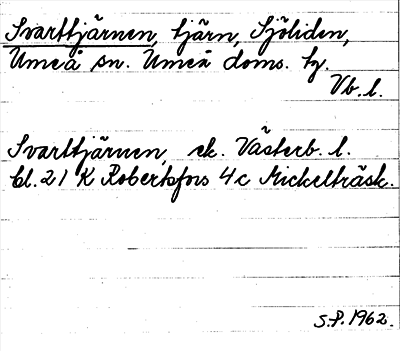 Svarttjärnen, tjärn, Sjöliden,
Umeå sn. Umeå doms. hg.
Vb. l.
Svarttjärnen, ek. Västerb. l.
bl. 21 K Robertsfors 4c Mickelträsk.
S.P. 1962.